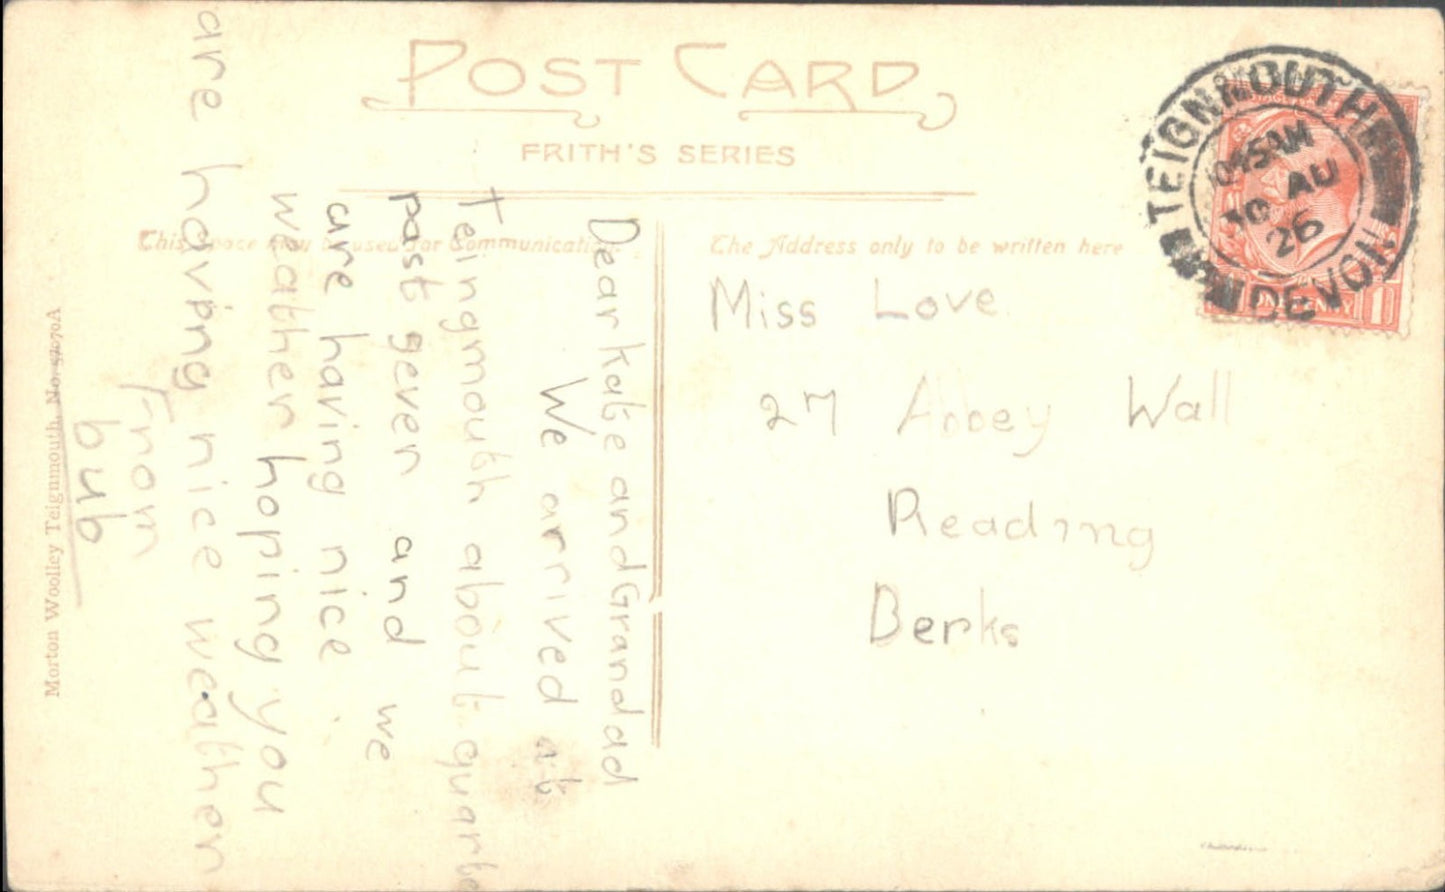 POST CARD
FRITH'S SERIES
This space may be used for Communication
The Address only to be written here
Dear kate and Grandad
We arrived at
Teingmouth about quarte
past seven and we
are having nice
weather hoping you
are having nice weather
From
bub
Miss Love
27 Abbey Wall
Reading
Berks
TEIGNMOUTH
AU
26
DEVON
Morton Woolley Teignmouth.